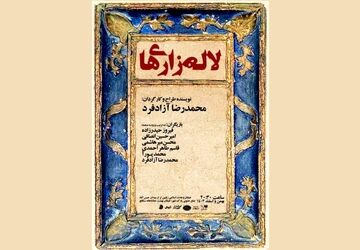 لاله‌زاری‌های
نویسنده، طراح و کارگردان:
محمدرضا آزادفرد
بازیگران:
فیروز حیدرزاده
امیرحسین انصافی
محسن میرهاشمی
قاسم طاهر احمدی
محمد پورآ
محمدرضا آزادفرد
ساعت ۲۰:۳۰